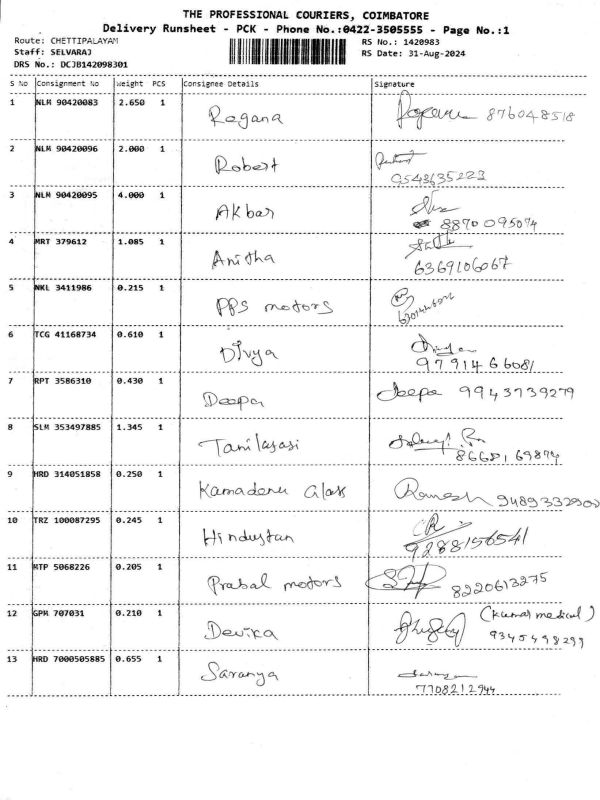 THE PROFESSIONAL COURIERS, COIMBATORE
Delivery Runsheet - PCK - Phone No.:0422-3505555 - Page No.:1
Route: CHETTIPALAYAM RS No.: 1420983
Staff: SELVARAJ RS Date: 31-Aug-2024
DRS No.: DCJB142098301
S No Consignment No Weight PCS Consignee Details Signature
1 NLM 90420083 2.650 1 Ragana 876048518
2 NLM 90420096 2.000 1 Robert
9543635223
3 NLM 90420095 4.000 1 Akbar
8870095074
4 MRT 379612 1.085 1 Anitha
6369106067
5 NKL 3411986 0.215 1 PPS motors
6 TCG 41168734 0.610 1 Divya
9791466081
7 RPT 3586310 0.430 1 Deepa Deepa 9943739279
8 SLM 353497885 1.345 1 Tamilarasi
9 HRD 314051858 0.250 1 Kamadenu Glass Ramesh
10 TRZ 100087295 0.245 1 Hindustan
9288156541
11 MTP 5068226 0.205 1 Prabal motors 8220613275
12 GPM 707031 0.210 1 Devika (Kumar medical)
9345498299
13 HRD 7000505885 0.655 1 Saranya
7708212944